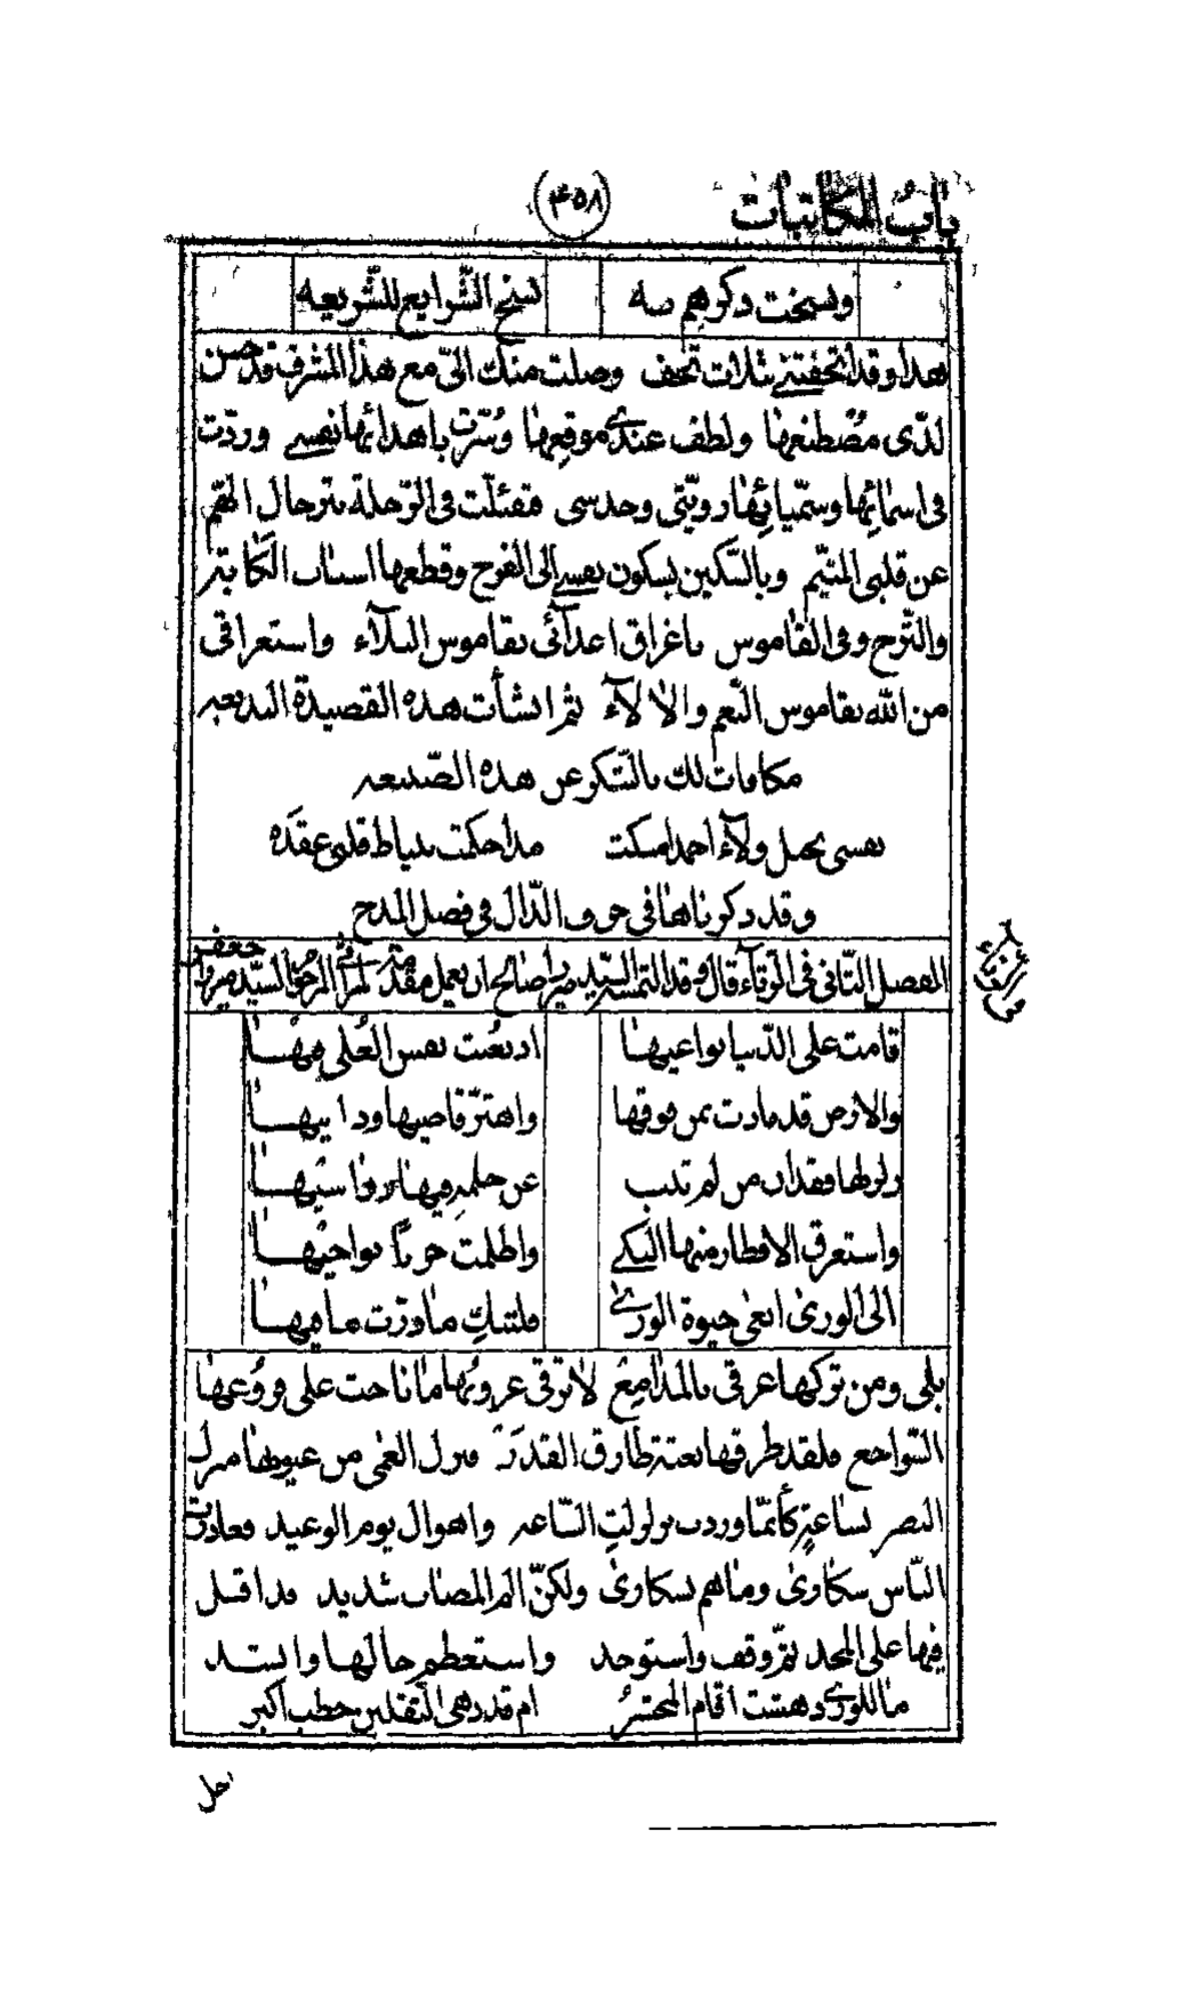 باب المكاتبات
۴۵۸
ونسخت ذكرهم به نسخ الشّرايع للشّريعه
هذا وقد اتحفتني بثلاث تحف وصلت منك الىّ مع هذا المشرف قد حسن
لدّى مصطنعها ولطف عندى موقعها وسُرّت باهدائها نفسى وردّت
فى اسمائها وسمّيائها رويّتى وحدسى فتفئلت فى الرّحلة بترحال الهمّ
عن قلبى المتيّم وبالسّكين بسكون نفسى الى الفرح وقطعها اسباب الكابة
والتّرح وفى القاموس باغراق اعدآئى بقاموس البلآء واستغراقى
من الله بقاموس النّعم والالآء ثم انشأت هذه القصيدة البديعه
مكافات لك بالشّكر عن هذه الصّنيعه
نفسى بحبل ولآء احمد امسكت مذ احكمت بنياط قلبى عقده
وقد ذكرناها فى حرف الدّال فى فصل المدح
الفصل الثّانى فى الرّثآء قال وقد التمسه السيّد ميرزا صالح ان يعمل مقدمة لمراثى المرحوم السيّد ميرزا جعفر
قامت على الدّنيا نواعيها اذ نعيت نفس العُلى فيها
والارض قد مادت بمن فوقها واهتزّ قاصيها ودانيها
زلزلها فقدان من لم تذب عن حلمه فيها رواسيها
واستغرق الاقطار منها البكى واظلمت حزناً نواحيها
الى الورىٰ انعى حيوة الورىٰ فلتبكِ ما ذرّت مافيها
بلى ومن تركها غرقى بالمدامع لاترقى غروبُها ما ناحت على فروعها
السّواجع فلقد طرقها بغتة طارق القدر فنزل العمى من عيونها منزل
البصر بساعةٍ كأنّما وردت بزلزلتِ السّاعه واهوال يوم الوعيد فعادت
النّاس سكاوىٰ وماهم بسكارىٰ ولكنّ الم المصاب شديد مذ اقبل
فيها على المجد ثمّ وقف واستوجد واستعظم حالها وانشد
ما للورى دهشت اقام المحشرُ ام قد دهى الثّقلين خطب اكبر